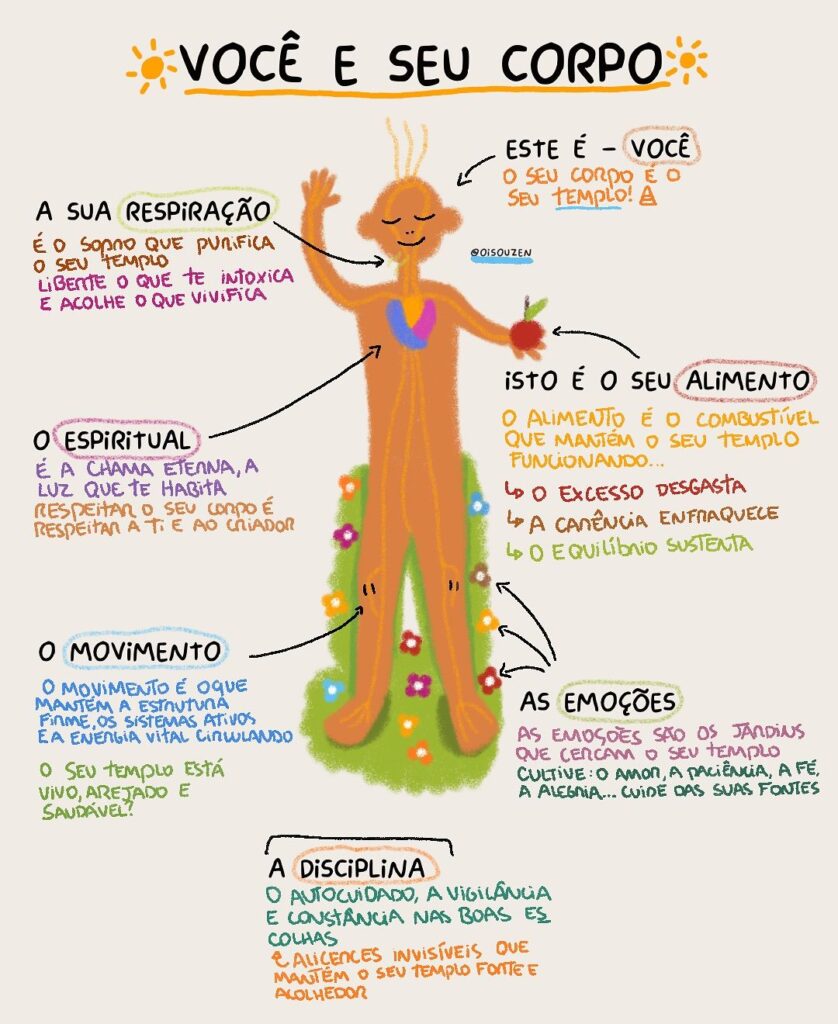 VOCÊ E SEU CORPO
ESTE É - VOCÊ
O SEU CORPO É O
SEU TEMPLO!
A SUA RESPIRAÇÃO
É O SOPRO QUE PURIFICA
O SEU TEMPLO
LIBERTE O QUE TE INTOXICA
E ACOLHE O QUE VIVIFICA
@OISOUZEN
ISTO É O SEU ALIMENTO
O ALIMENTO É O COMBUSTÍVEL
QUE MANTÉM O SEU TEMPLO
FUNCIONANDO...
↳ O EXCESSO DESGASTA
↳ A CARÊNCIA ENFRAQUECE
↳ O EQUILÍBRIO SUSTENTA
O ESPIRITUAL
É A CHAMA ETERNA, A
LUZ QUE TE HABITA
RESPEITAR O SEU CORPO É
RESPEITAR A TI E AO CRIADOR
O MOVIMENTO
O MOVIMENTO É O QUE
MANTÉM A ESTRUTURA
FIRME, OS SISTEMAS ATIVOS
E A ENERGIA VITAL CIRCULANDO
O SEU TEMPLO ESTÁ
VIVO, AREJADO E
SAUDÁVEL?
AS EMOÇÕES
AS EMOÇÕES SÃO OS JARDINS
QUE CERCAM O SEU TEMPLO
CULTIVE: O AMOR, A PACIÊNCIA, A FÉ,
A ALEGRIA... CUIDE DAS SUAS FONTES
A DISCIPLINA
O AUTOCUIDADO, A VIGILÂNCIA
E CONSTÂNCIA NAS BOAS ES
COLHAS
ALICERCES INVISÍVEIS QUE
MANTÉM O SEU TEMPLO FORTE E
ACOLHEDOR